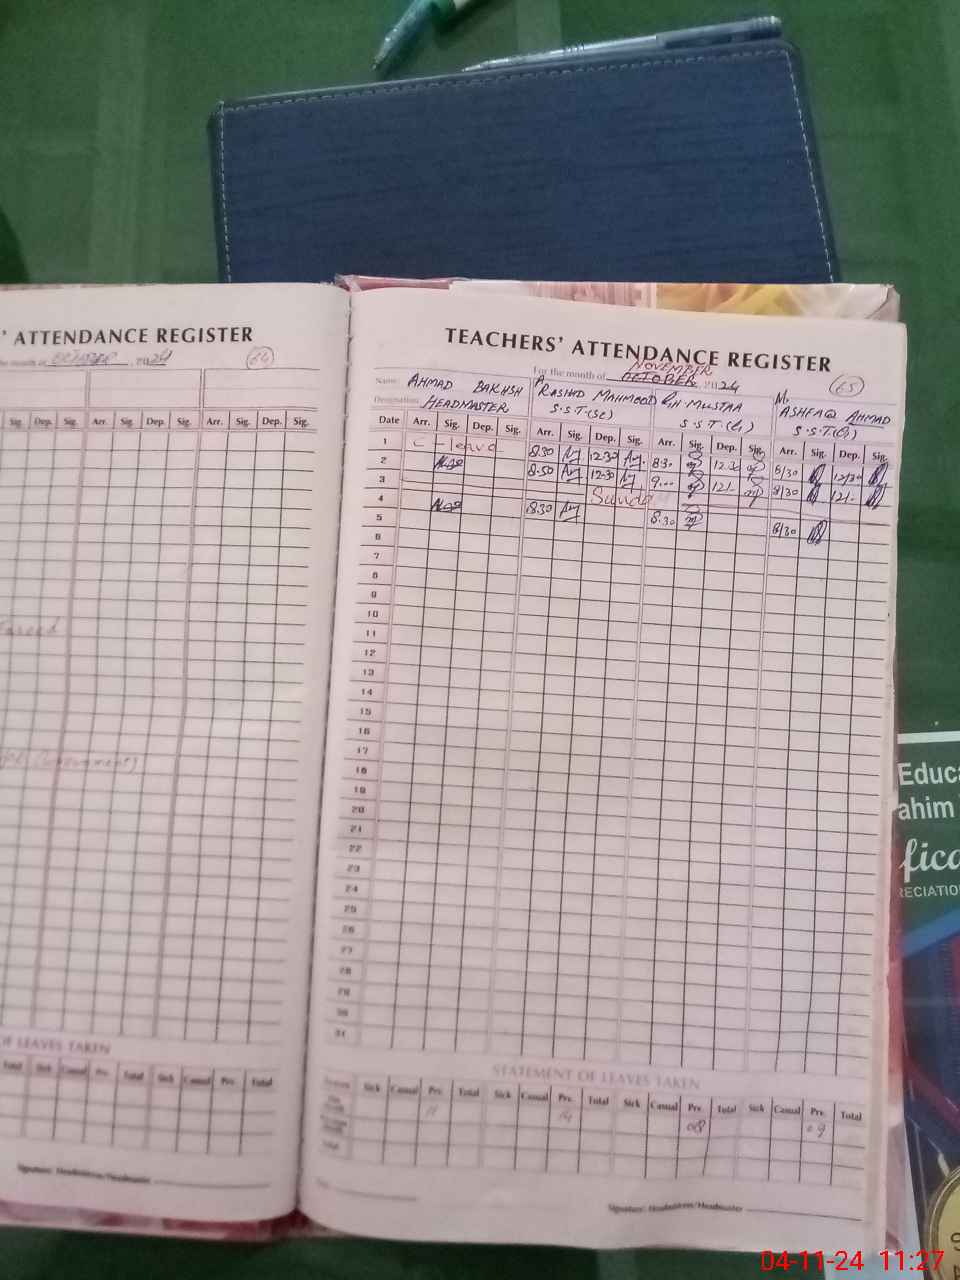 ' ATTENDANCE REGISTER
OCTOBER 2024
64
Sig. Dep. Sig. Arr. Sig. Dep. Sig. Arr. Sig. Dep. Sig.
OF LEAVES TAKEN
Total Sick Casual Prv. Total Sick Casual Prv. Total
Signature: Headmistress/Headmaster
TEACHERS' ATTENDANCE REGISTER
NOVEMBER
For the month of OCTOBER 2024
65
Name AHMAD BAKHSH RASHID MAHMOOD MUSTAA ASHFAQ AHMAD
Designation HEADMASTER S.S.T.(SC) S.S.T. S.S.T.
Date Arr. Sig. Dep. Sig. Arr. Sig. Dep. Sig. Arr. Sig. Dep. Sig. Arr. Sig. Dep. Sig.
1 C-leave 8.30 12-30 8.30 12.30 8/30 12/30
2 8.50 12-30 9.00 12/- 8/30 12/-
3 Sunday
4 8.30 8.30 8/30
5
6
7
8
9
10
11
12
13
14
15
16
17
18
19
20
21
22
23
24
25
26
27
28
29
30
31
STATEMENT OF LEAVES TAKEN
Sick Casual Prv. Total Sick Casual Prv. Total Sick Casual Prv. Total Sick Casual Prv. Total
11 14 08 09
Total
Signature: Headmistress/Headmaster
Educa
ahim
fica
RECIATION
04-11-24 11:27